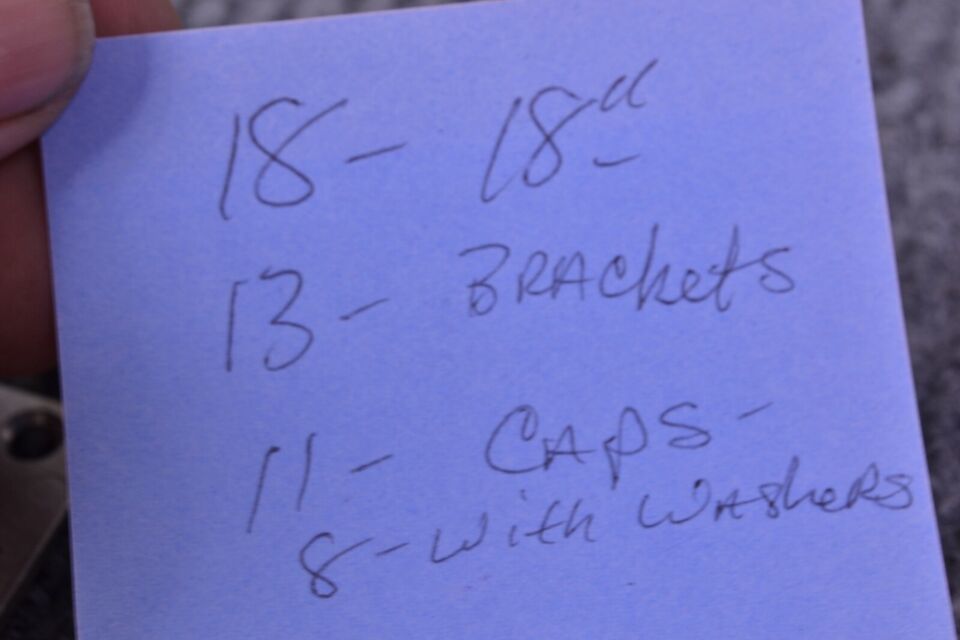 18 - 18"
13 - BRAckets
11 - CAPS -
8 - with WAsheRs